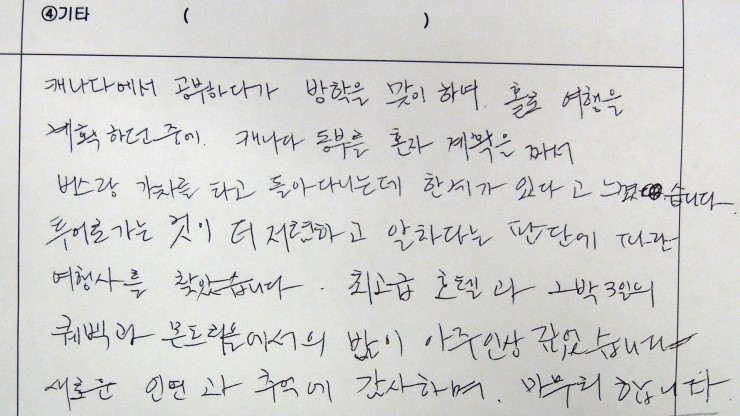 ④기타 ( )
캐나다에서 공부하다가 방학을 맞이 하며. 홀로 여행을
계획 하던 중에. 캐나다 동부를 혼자 계획을 짜서
버스랑 기차를 타고 돌아다니는데 한계가 있다고 느꼈습니다.
투어로 가는 것이 더 저렴하고 알차다는 판단에 따라
여행사를 찾았습니다. 최고급 호텔과 2박3일의
퀘벡과 몬트리올에서의 밤이 아주 인상 깊었습니다
새로운 인연과 추억에 감사하며. 마무리 합니다.